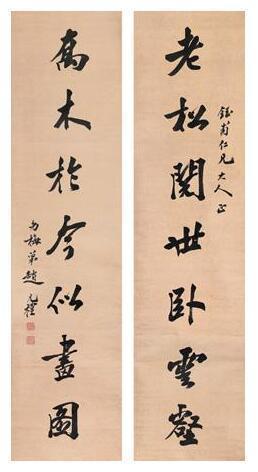 老松閱世卧雲壑
仁兄大人正
喬木於今似畫圖
幼梅弟趙元禮